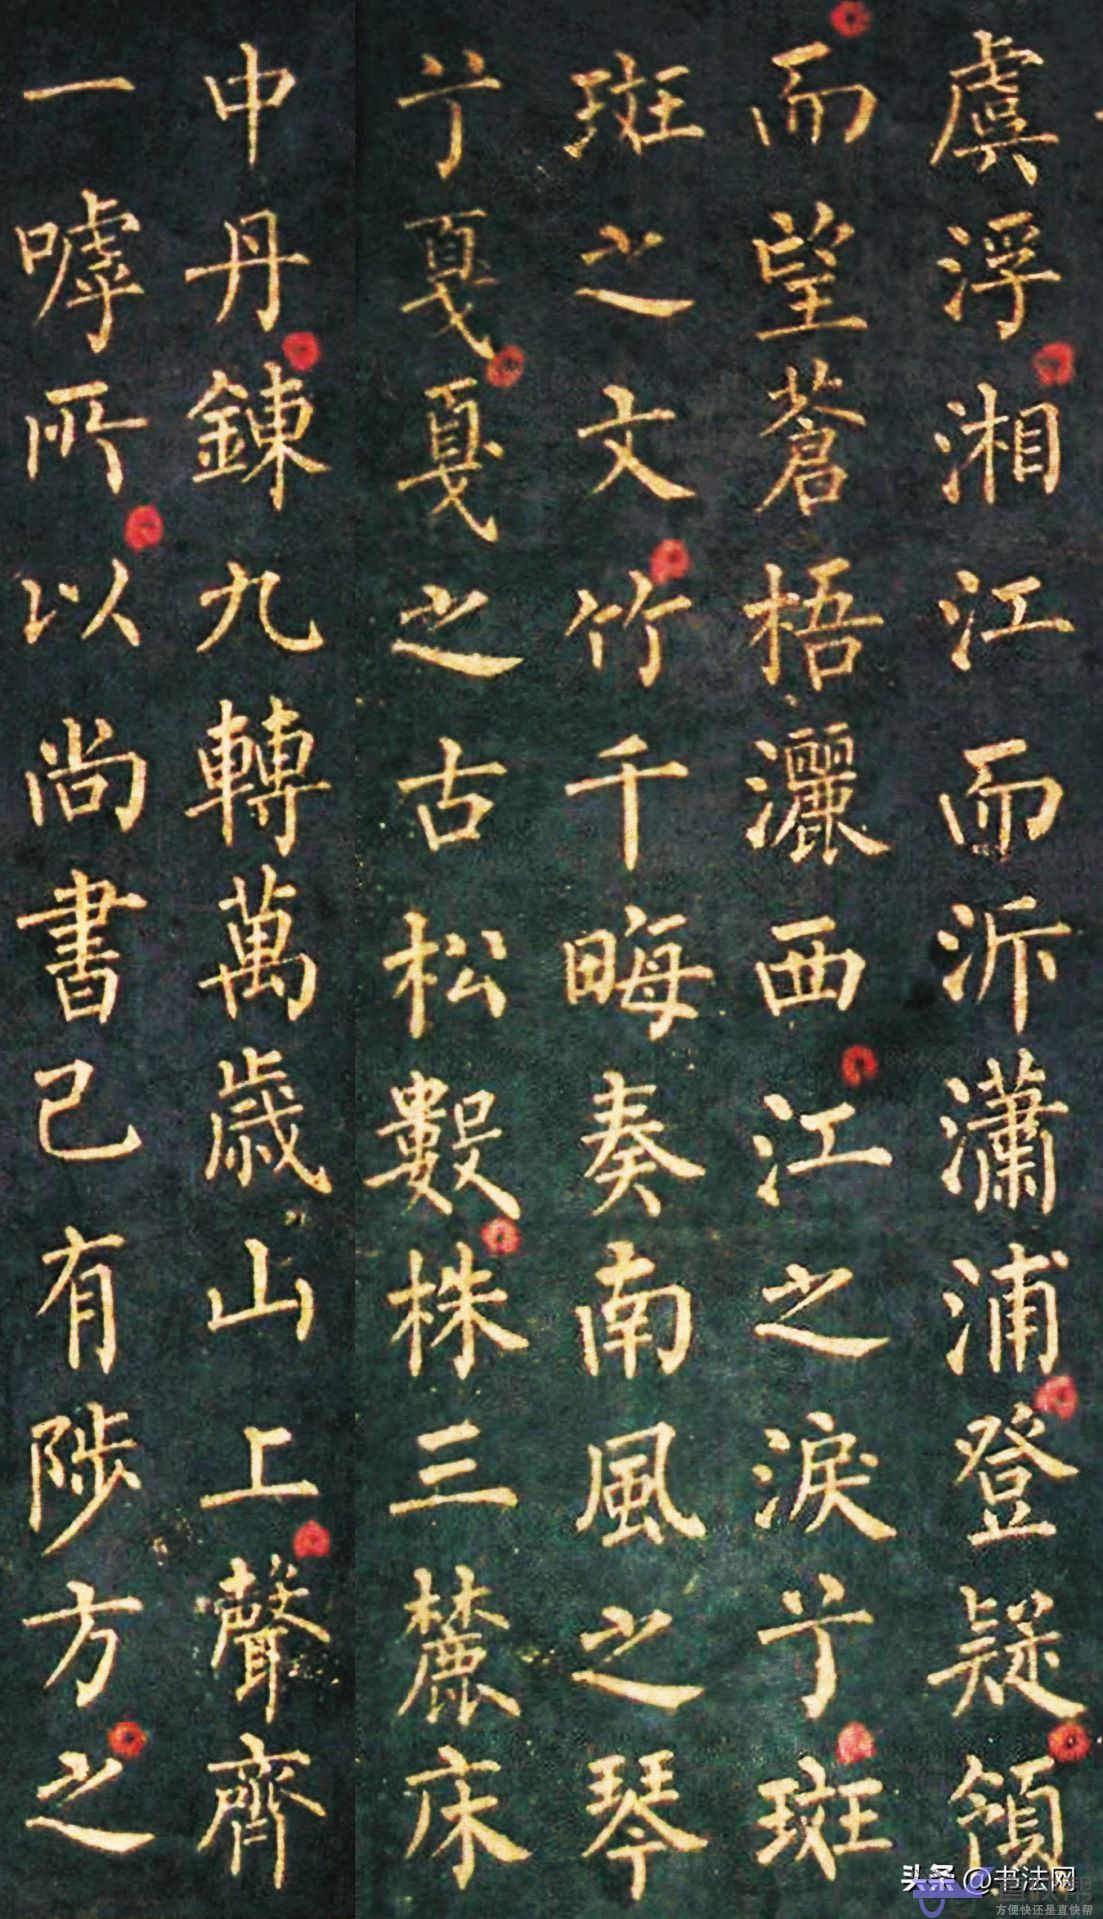 虞浮湘江而泝瀟浦登疑領
而望蒼梧灑西江之淚兮斑
斑之文竹千晦奏南風之琴
兮戛戛之古松數株三麓床
中丹鍊九轉萬歲山上聲齊
一嘑所以尚書已有陟方之
头条 @书法网
直快帮
方便快还是直快帮